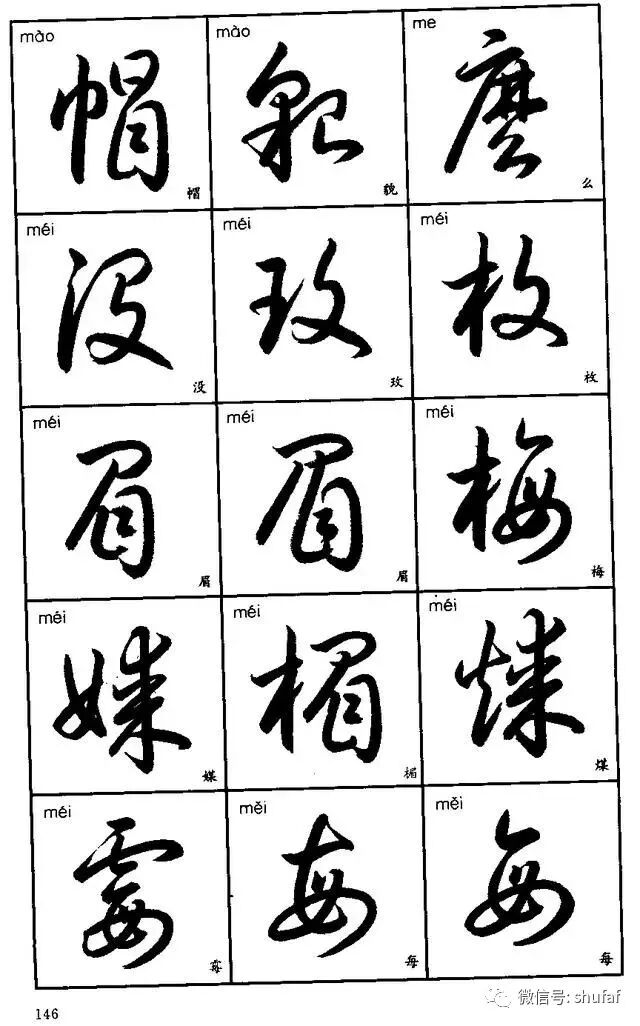 mào mào me
帽 貌 麼
帽 貌 么
méi méi méi
没 玫 枚
没 玫 枚
méi méi méi
眉 眉 梅
眉 眉 梅
méi méi méi
媒 楣 煤
媒 楣 煤
méi měi měi
霉 每 每
霉 每 每
146
微信号: shufaf